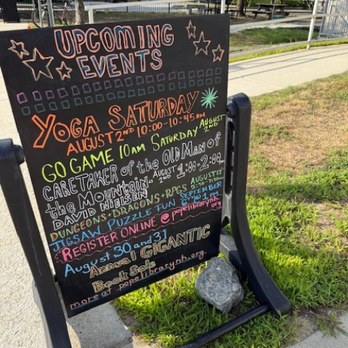 UPCOMING
EVENTS
YOGA SATURDAY
AUGUST 2ND 10:00-10:45 AM
GO GAME 10am SATURDAY AUGUST 2ND
CARETAKER of the OLD Man of
the Mountain-
AUGUST
DAVID
DUNGEONS+DRAGONS+RPGS
JIGSAW PUZZLE FUN SEPTEMBER
REGISTER ONLINE @ popelibrarynh.
August 30 and 31
Annual GIGANTIC
Book Sale
more at popelibrarynh.org.